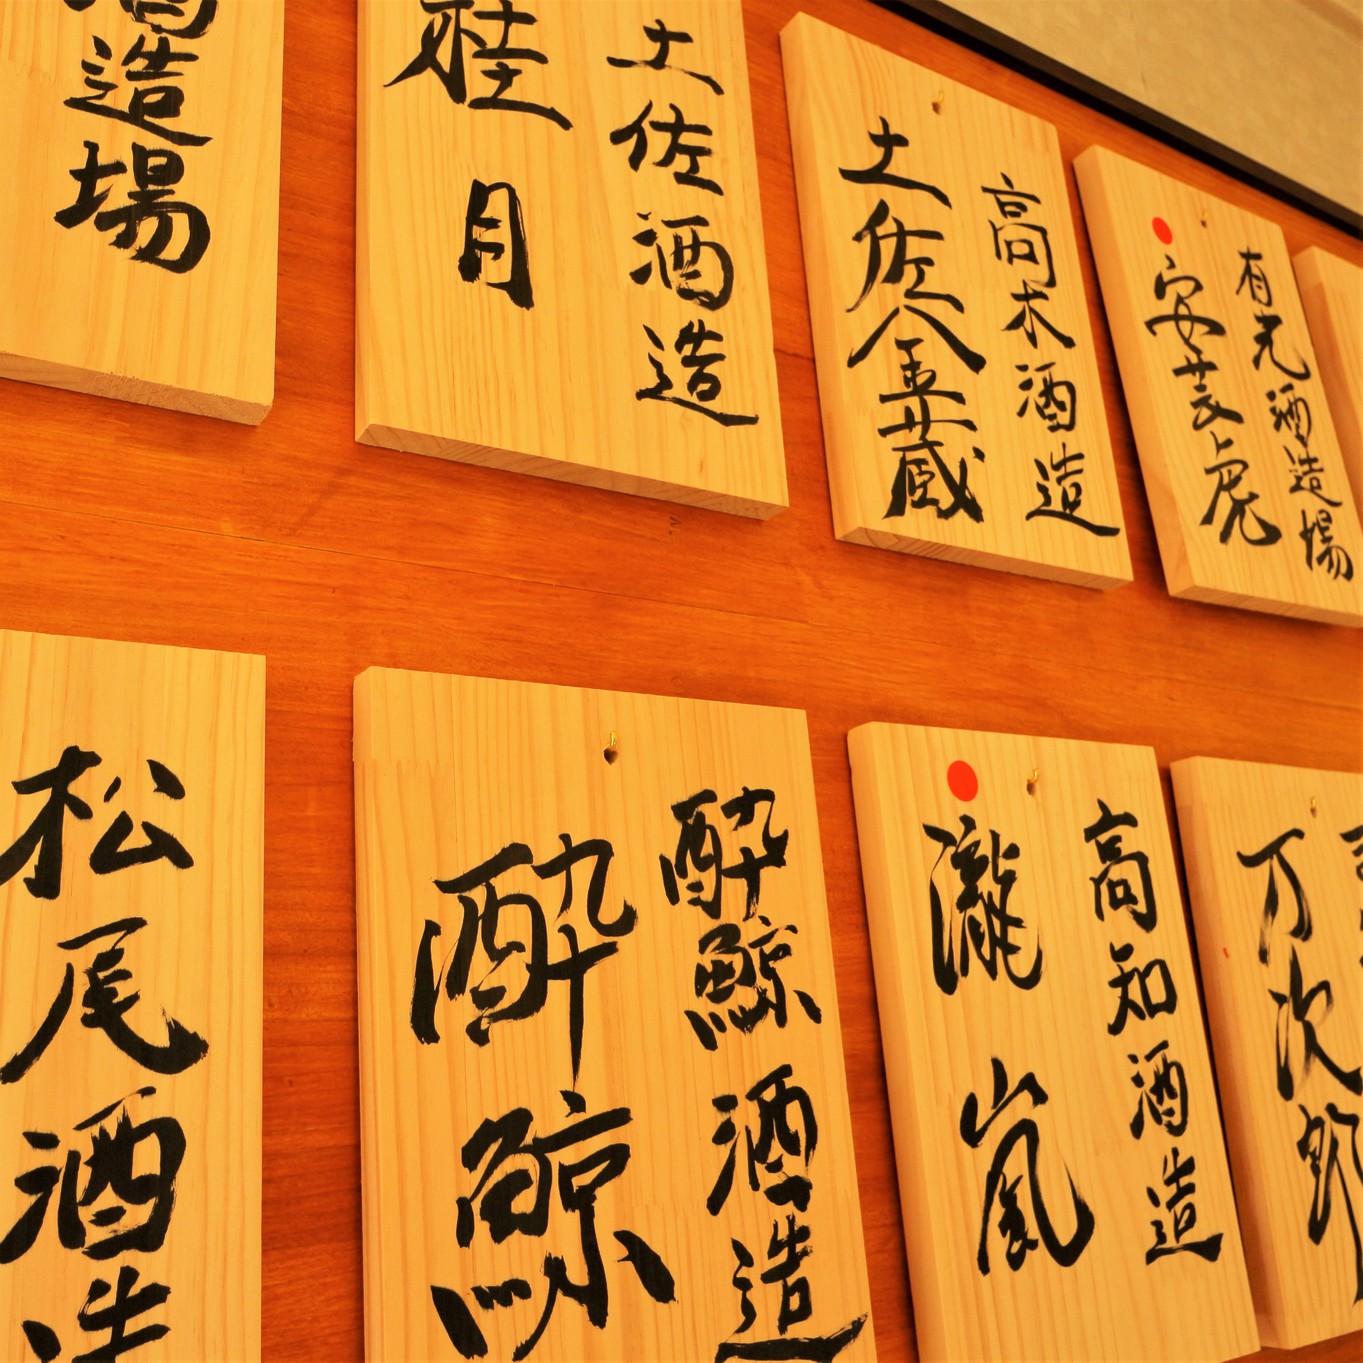 酒造場
土佐酒造
桂月
高木酒造
土佐金蔵
有光酒造場
安芸虎
松尾酒造
酔鯨酒造
酔鯨
高知酒造
瀧嵐
万次郎